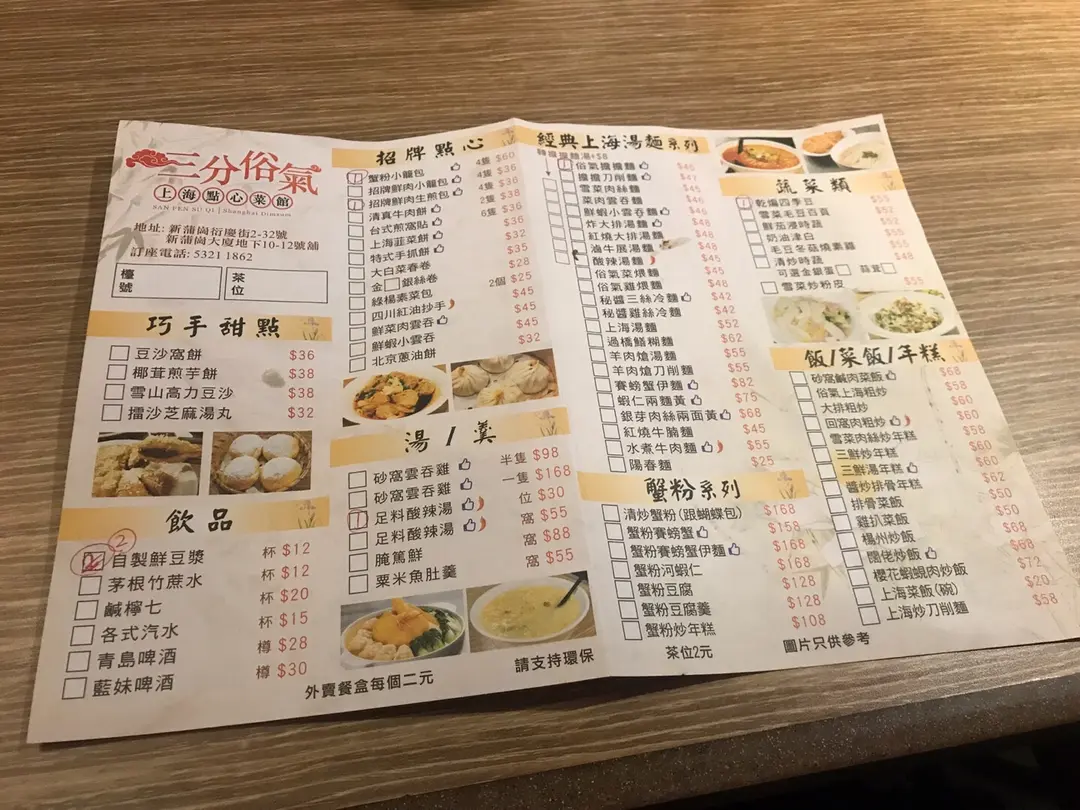 三分俗氣
上海點心菜館
SAN FEN SU QI | Shanghai Dimsum
地址: 新蒲崗衍慶街2-32號
新蒲崗大廈地下10-12號舖
訂座電話: 5321 1862
檯號
茶位
巧手甜點
豆沙窩餅 $36
椰茸煎芋餅 $38
雪山高力豆沙 $38
擂沙芝麻湯丸 $32
飲品
2
自製鮮豆漿 杯 $12
茅根竹蔗水 杯 $12
鹹檸七 杯 $20
各式汽水 杯 $15
青島啤酒 樽 $28
藍妹啤酒 樽 $30
招牌點心
蟹粉小籠包 4隻 $60
招牌鮮肉小籠包 4隻 $36
招牌鮮肉生煎包 4隻 $36
清真牛肉餅 2隻 $38
台式煎窩貼 6隻 $36
上海韮菜餅 $32
特式手抓餅 $35
大白菜春卷 $28
金 銀絲卷 2個 $25
綠楊素菜包 $45
四川紅油抄手 $45
鮮菜肉雲吞 $45
鮮蝦小雲吞 $32
北京蔥油餅
湯/羹
砂窩雲吞雞 半隻 $98
砂窩雲吞雞 一隻 $168
足料酸辣湯 位 $30
足料酸辣湯 窩 $55
腌篤鮮 窩 $88
粟米魚肚羹 窩 $55
外賣餐盒每個二元
請支持環保
經典上海湯麵系列
轉擔擔麵湯+$8
俗氣擔擔麵 $45
擔擔刀削麵 $46
雪菜肉絲麵 $45
菜肉雲吞麵 $46
鮮蝦小雲吞麵 $46
炸大排湯麵 $48
紅燒大排湯麵 $48
滷牛展湯麵 $48
酸辣湯麵 $48
俗氣菜煨麵 $45
俗氣雞煨麵 $48
秘醬三絲冷麵 $42
秘醬雞絲冷麵 $42
上海湯麵 $52
過橋鱔糊麵 $62
羊肉熗湯麵 $55
羊肉熗刀削麵 $55
賽螃蟹伊麵 $82
蝦仁兩麵黃 $75
銀芽肉絲兩面黃 $68
紅燒牛腩麵 $45
水煮牛肉麵 $55
陽春麵 $25
蟹粉系列
清炒蟹粉(跟蝴蝶包) $168
蟹粉賽螃蟹 $158
蟹粉賽螃蟹伊麵 $168
蟹粉河蝦仁 $168
蟹粉豆腐 $128
蟹粉豆腐羹 $128
蟹粉炒年糕 $108
茶位2元
圖片只供參考
蔬菜類
乾煸四季豆 $55
雪菜毛豆百頁 $52
鮮茄浸時蔬
奶油津白
毛豆冬菇燒素雞 $55
清炒時蔬 $48
可選金銀蛋 蒜茸
雪菜炒粉皮 $55
飯/菜飯/年糕
砂窩鹹肉菜飯 $68
俗氣上海粗炒 $58
大排粗炒 $60
回窩肉粗炒 $60
雪菜肉絲炒年糕 $58
三鮮炒年糕 $60
三鮮湯年糕 $60
醬炒排骨年糕 $62
排骨菜飯 $50
雞扒菜飯 $50
楊州炒飯 $68
闊佬炒飯 $68
櫻花蝦蜆肉炒飯 $72
上海菜飯(碗) $20
上海炒刀削麵 $58